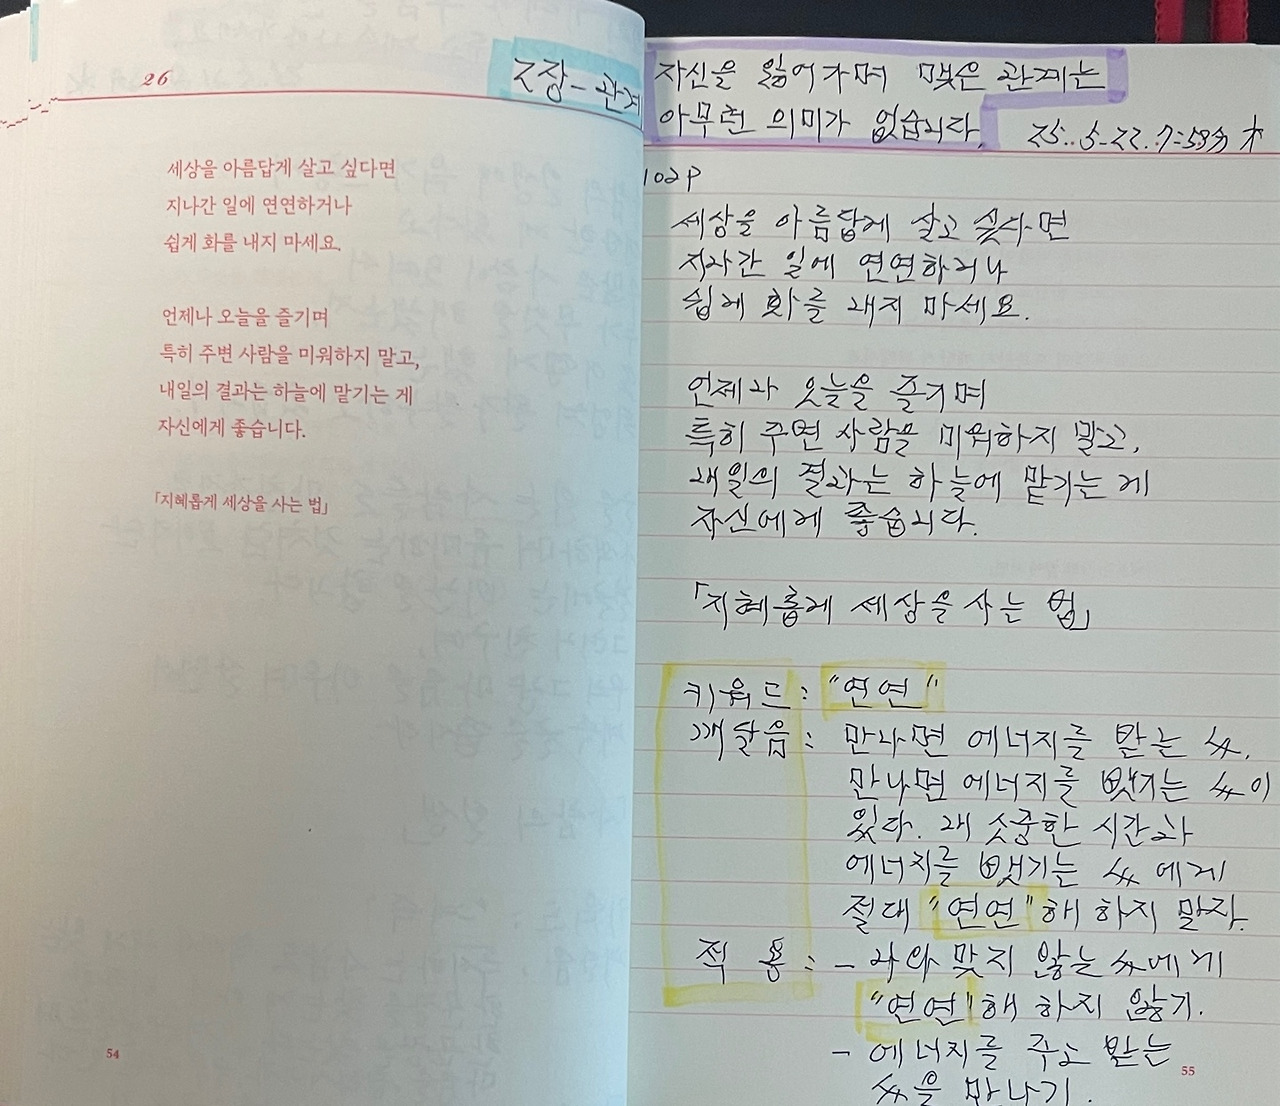 26
2장-관계
세상을 아름답게 살고 싶다면
지나간 일에 연연하거나
쉽게 화를 내지 마세요.
언제나 오늘을 즐기며
특히 주변 사람을 미워하지 말고,
내일의 결과는 하늘에 맡기는 게
자신에게 좋습니다.
「지혜롭게 세상을 사는 법」
54
자신을 잃어가며 맺은 관계는
아무런 의미가 없습니다.
25..5-22.7:58분 木
102P
세상을 아름답게 살고 싶다면
지나간 일에 연연하거나
쉽게 화를 내지 마세요.
언제나 오늘을 즐기며
특히 주변 사람을 미워하지 말고,
내일의 결과는 하늘에 맡기는 게
자신에게 좋습니다.
「지혜롭게 세상을 사는 법」
키워드 : "연연"
깨달음 : 만나면 에너지를 받는 人人.
만나면 에너지를 뺏기는 人人이
있다. 내 소중한 시간과
에너지를 뺏기는 人人에게
절대 "연연"해 하지 말자.
적용 : - 나와 맞지 않는 人人에게
"연연"해 하지 않기.
- 에너지를 주고 받는
人人을 만나기.
55